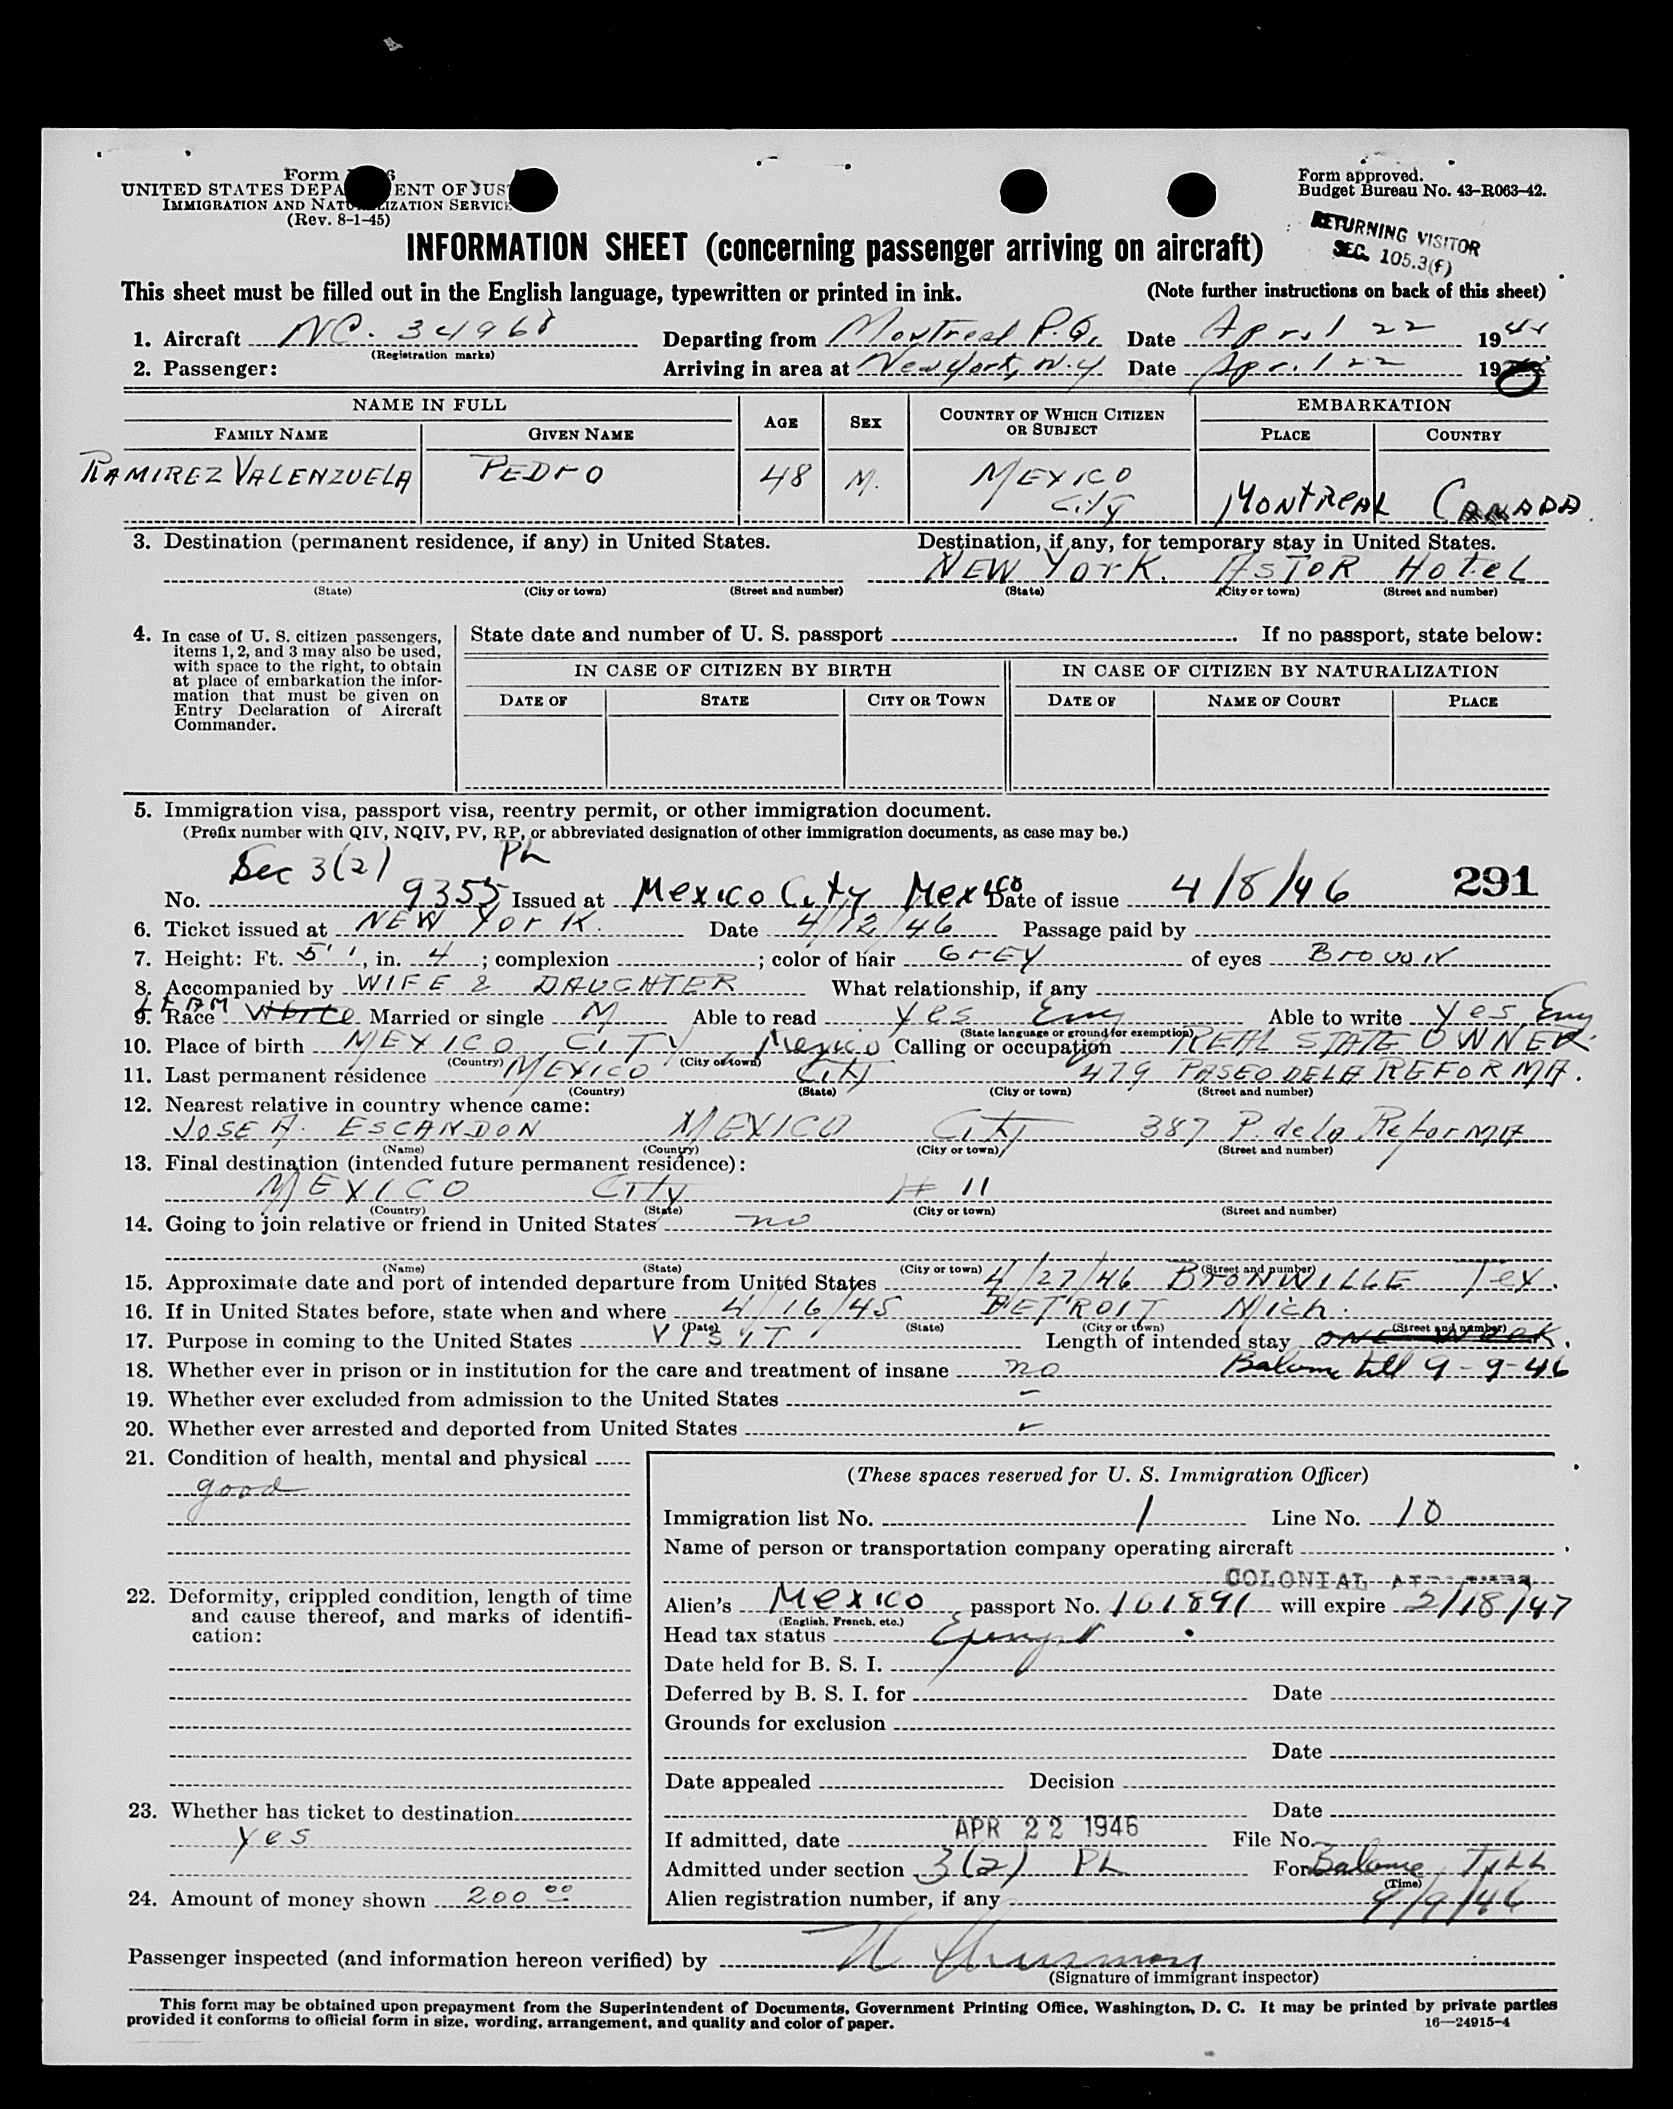 Form 6
UNITED STATES DEPA ENT OF JUS
IMMIGRATION AND NATU LIZATION SERVICE
(Rev. 8-1-45)
Form approved.
Budget Bureau No. 43-R063-42.
RETURNING VISITOR
SEC. 105.3(f)
INFORMATION SHEET (concerning passenger arriving on aircraft)
This sheet must be filled out in the English language, typewritten or printed in ink. (Note further instructions on back of this sheet)
1. Aircraft NC. 34968 Departing from Montreal P.Q. Date April 22 19
(Registration marks)
2. Passenger: Arriving in area at New York, N.Y. Date April 22 19
NAME IN FULL AGE SEX COUNTRY OF WHICH CITIZEN OR SUBJECT EMBARKATION
FAMILY NAME GIVEN NAME PLACE COUNTRY
RAMIREZ VALENZUELA PEDrO 48 M. MEXICO City MONTREAL CANADA
3. Destination (permanent residence, if any) in United States. Destination, if any, for temporary stay in United States.
NEW YOrK. ASTOR HoteL
(State) (City or town) (Street and number) (State) (City or town) (Street and number)
4. In case of U. S. citizen passengers,
items 1, 2, and 3 may also be used,
with space to the right, to obtain
at place of embarkation the infor-
mation that must be given on
Entry Declaration of Aircraft
Commander.
State date and number of U. S. passport . If no passport, state below:
IN CASE OF CITIZEN BY BIRTH IN CASE OF CITIZEN BY NATURALIZATION
DATE OF STATE CITY OR TOWN DATE OF NAME OF COURT PLACE
5. Immigration visa, passport visa, reentry permit, or other immigration document.
(Prefix number with QIV, NQIV, PV, RP, or abbreviated designation of other immigration documents, as case may be.)
Sec 3(2) PL
No. 9355 Issued at Mexico City Mexico Date of issue 4/8/46 291
6. Ticket issued at NEW YorK. Date 4/12/46 Passage paid by
7. Height: Ft. 5', in. 4; complexion ; color of hair GrEY of eyes Brown
8. Accompanied by WIFE & DAUGHTER What relationship, if any
9. Race White Married or single M Able to read Yes Eng Able to write Yes Eng
(State language or ground for exemption)
10. Place of birth MEXICO CITY Mexico Calling or occupation REAL STATE OWNER.
(Country) (City or town)
11. Last permanent residence MEXICO City 479 PASEO DE LA REFORMA.
(Country) (State) (City or town) (Street and number)
12. Nearest relative in country whence came:
JOSE A. ESCANDON MEXICO City 387 P. de la Reforma
(Name) (Country) (City or town) (Street and number)
13. Final destination (intended future permanent residence):
MEXICO CiTy # 11
(Country) (State) (City or town) (Street and number)
14. Going to join relative or friend in United States no
(Name) (State) (City or town) (Street and number)
15. Approximate date and port of intended departure from United States 4/27/46 BrONWILLE Tex.
16. If in United States before, state when and where 4/16/45 DETROIT Mich.
(Date) (State) (City or town) (Street and number)
17. Purpose in coming to the United States VISIT Length of intended stay ONE WEEK.
18. Whether ever in prison or in institution for the care and treatment of insane no Balance till 9-9-46
19. Whether ever excluded from admission to the United States –
20. Whether ever arrested and deported from United States
21. Condition of health, mental and physical
good
22. Deformity, crippled condition, length of time
and cause thereof, and marks of identifi-
cation:
23. Whether has ticket to destination
Yes
24. Amount of money shown 200 00
(These spaces reserved for U. S. Immigration Officer)
Immigration list No. 1 Line No. 10
Name of person or transportation company operating aircraft
COLONIAL
Alien's Mexico passport No. 101891 will expire 2/18/47
(English, French, etc.)
Head tax status Exempt
Date held for B. S. I.
Deferred by B. S. I. for Date
Grounds for exclusion
Date
Date appealed Decision
Date
If admitted, date APR 22 1946 File No.
Admitted under section 3(2) PL For Balance TILL
(Time)
Alien registration number, if any 9/9/46
Passenger inspected (and information hereon verified) by
(Signature of immigrant inspector)
This form may be obtained upon prepayment from the Superintendent of Documents, Government Printing Office, Washington, D. C. It may be printed by private parties
provided it conforms to official form in size, wording, arrangement, and quality and color of paper. 16—24915-4